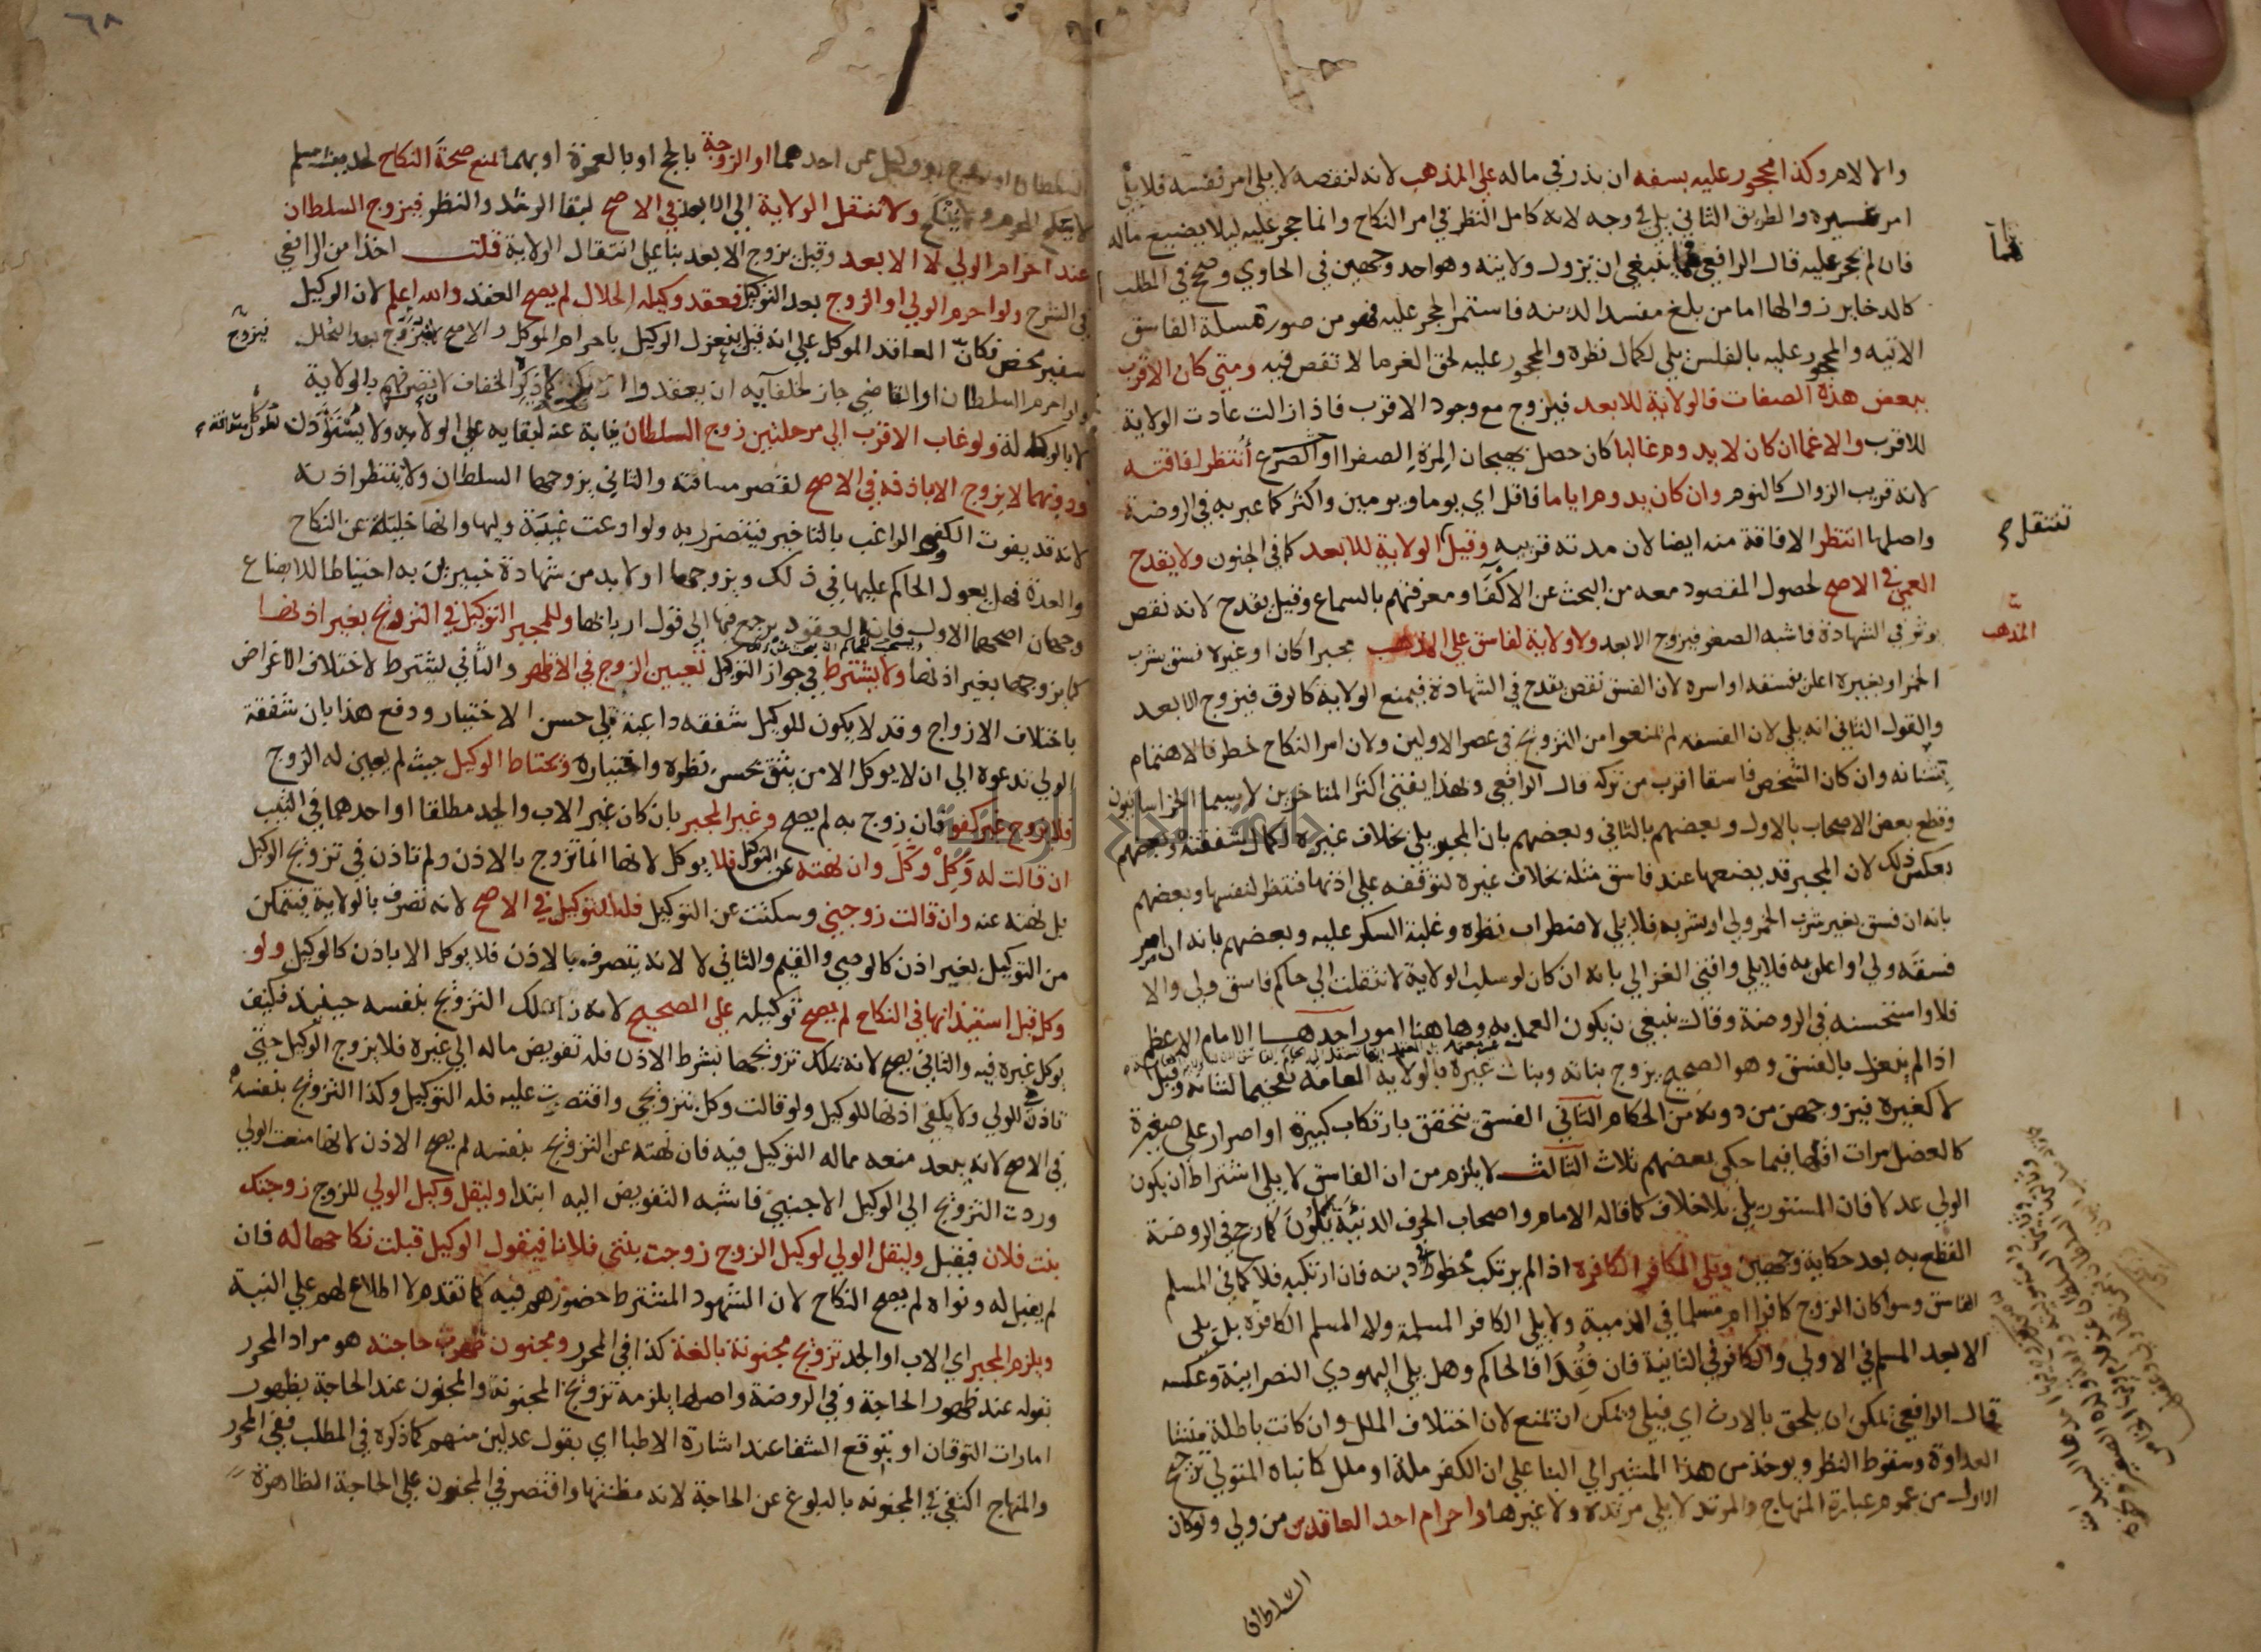 والالام وكذا محجور عليه بسفه ان بذر في ماله علي المذهب لانه لنقصه لا يلي امر نفسه فلا يلي
امر غيره والطريق الثاني يلي في وجه لانه كامل النظر في امر النكاح وانما حجر عليه ليلا يضيع ماله
فان لم يحجر عليه قال الرافعي فما ينبغي ان تزول ولايته وهو احد وجهين في الحاوي وصحح في المطلب
كالدخاير زوالها اما من بلغ مفسدا لدينه فاستمر الحجر عليه فهو من صور مسلة الفاسق
الاتيه والمحجور عليه بالفلس يلي لكمال نظره والمحجور عليه لحق الغرما لا نقص فيه ومتي كان الاقرب
ببعض هذه الصفات فالولاية للابعد فيزوج مع وجود الاقرب فاذا زالت عادت الولاية
للاقرب والاغما ان كان لا يدوم غالبا كان حصل بهيجان المرة الصفرا او الصرع انتظر افاقته
لانه قريب الزوال كالنوم وان كان يدوم اياما فاقل اي يوما ويومين واكثر كما عبر به في الروضة
واصلها انتظر الافاقة منه ايضا لان مدته قريبه وقيل الولاية للابعد كما في الجنون ولا يقدح
العمي في الاصح لحصول المقصود معه من البحث عن الاكفا ومعرفتهم بالسماع وقيل يقدح لانه نقص
يوثر في الشهادة فاشبه الصغر فيزوج الابعد ولا ولاية لفاسق علي المذهب مجبرا كان او غيره فسق بشرب
الخمر او بغيره اعلن بفسقه او اسره لان الفسق نقص يقدح في الشهادة فيمنع الولاية كالرق فيزوج الابعد
والقول الثاني انه يلي لان الفسقه لم يمنعوا من التزويج في عصر الاولين ولان امر النكاح خطر فالاهتمام
بشانه وان كان الشخص فاسقا اقرب من تركه قال الرافعي وبهذا يفتي اكثر المتاخرين لا سيما الخراسانيون
وقطع بعض الاصحاب بالاول وبعضهم بالثاني وبعضهم بان المجبر يلي بخلاف غيره لكمال شفقته وبعضهم
بعكس ذلك لان المجبر قد يضعها عند فاسق مثله بخلاف غيره لتوقفه علي اذنها فتنظر لنفسها وبعضهم
بانه ان فسق بغير شرب الخمر ولي او بشربه فلا يلي لاضطراب نظره وغلبة السكر عليه وبعضهم بانه ان اسر
فسقه ولي او اعلن به فلا يلي وافتي الغزالي بانه ان كان لو سلب الولاية لانتقلت الي حاكم فاسق ولي والا
فلا واستحسنه في الروضة وقال ينبغي ان يكون العمل به وها هنا امور احدها الامام الاعظم
اذا لم ينعزل بالفسق وهو الصحيح يزوج بناته وبنات غيره بالولاية العامه تفخيما لشانه وقيل
لا كغيره فيزوجهن من دونه من الحكام الثاني الفسق يتحقق بارتكاب كبيرة او اصرار علي صغيرة
كالعضل مرات اقلها فيما حكي بعضهم ثلاث الثالث لا يلزم من ان الفاسق لا يلي اشتراط ان يكون
الولي عدلا فان المستور يلي بلا خلاف كما قاله الامام واصحاب الحرف الدنيه يلون كما رجح في الروضة
القطع به بعد حكاية وجهين ويلي الكافر الكافره اذا لم يرتكب محظور دينه فان ارتكبه فلا كما في المسلم
الفاسق وسوا كان الزوج كافرا ام مسلما في الذمية ولا يلي الكافر المسلمة ولا المسلم الكافرة بل يلي
الابعد المسلم في الاولي والكافر في الثانية فان فقد افالحاكم وهل يلي اليهودي النصرانية وعكسه
قال الرافعي يمكن ان يلحق بالارث اي فيلي ويمكن ان يمنع لان اختلاف الملل وان كانت باطلة منشا
العداوة وسقوط النظر ويوخذ من هذا المشير الي البنا علي ان الكفر ملة او ملل كما بناه المتولي ترجيح
الاول من عموم عبارة المنهاج والمرتد لا يلي مرتده ولا غيرها واحرام احد العاقدين من ولي ولو كان
السلطان
فما
تنتقل
المذهب
٦٨
السلطان او زوج او وكيل عن احدهما او الزوجة بالحج او بالعمرة او بهما يمنع صحة النكاح لحديث مسلم
لا ينكح المحرم ولا ينكح ولا تنتقل الولاية الي الابعد في الاصح لبقا الرشد والنظر فيزوج السلطان
عند احرام الولي لا الابعد وقيل يزوج الابعد بنا علي انتقال الولاية قلت اخذا من الرافعي
في الشرح ولو احرم الولي او الزوج بعد التوكيل فعقد وكيله الحلال لم يصح العقد والله اعلم لان الوكيل
سفير محض فكان العاقد الموكل علي انه قيل ينعزل الوكيل باحرام الموكل والاصح لا فيزوج بعد التحلل
ولو احرم السلطان او القاضي جاز لخلفايه ان يعقدوا الانكحة كما ذكره الخفاف لان تصرفهم بالولاية
لا بالوكالة ولو غاب الاقرب الي مرحلتين زوج السلطان نيابة عنه لبقايه علي الولاية ولا يستوذن
ودونهما لا يزوج الا باذنه في الاصح لقصر مسافته والثاني يزوجها السلطان ولا ينتظر اذنه
لانه قد يفوت الكفو الراغب بالتاخير فتتضرر به ولو ادعت غيبة وليها وانها خلية عن النكاح
والعدة فهل يعول الحاكم عليها في ذلك ويزوجها او لا بد من شهادة خبيرين به احتياطا للابضاع
وجهان اصحهما الاول فان العقود يرجع فيها الي قول اربابها وللمجبر التوكيل في التزويج بغير اذنها
كما يزوجها بغير اذنها ولا يشترط في جواز التوكيل تعيين الزوج في الاظهر والثاني يشترط لاختلاف الاغراض
باختلاف الازواج وقد لا يكون للوكيل شفقه داعية الي حسن الاختيار ودفع هذا بان شفقة
الولي تدعوه الي ان لا يوكل الا من يثق بحسن نظره واختياره ويحتاط الوكيل حيث لم يعين له الزوج
فلا يزوج غير كفو فان زوج به لم يصح وغير المجبر بان كان غير الاب والجد مطلقا او احدهما في الثيب
ان قالت له وكل وكل وان نهته عن التوكيل فلا يوكل لانها انما تزوج بالاذن ولم تاذن في تزويج الوكيل
بل نهته عنه وان قالت زوجني وسكتت عن التوكيل فله التوكيل في الاصح لانه تصرف بالولاية فيتمكن
من التوكيل بغير اذن كالوصي والقيم والثاني لا لانه يتصرف بالاذن فلا يوكل الا باذن كالوكيل ولو
وكل قبل استيذانها في النكاح لم يصح توكيله علي الصحيح لانه لا يملك التزويج بنفسه حينيذ فكيف
يوكل غيره فيه والثاني يصح لانه يملك تزويجها بشرط الاذن فله تفويض ماله الي غيره فلا يزوج الوكيل حتي
تاذن للولي ولا يكفي اذنها للوكيل ولو قالت وكل بتزويجي واقتصرت عليه فله التوكيل وكذا التزويج بنفسه
في الاصح لانه يبعد منعه مما له التوكيل فيه فان نهته عن التزويج بنفسه لم يصح الاذن لانها منعت الولي
وردت التزويج الي الوكيل الاجنبي فاشبه التفويض اليه ابتدا وليقل وكيل الولي للزوج زوجتك
بنت فلان فيقبل وليقل الولي لوكيل الزوج زوجت بنتي فلانا فيقول الوكيل قبلت نكاحها له فان
لم يقبل له ونواه لم يصح النكاح لان الشهود المشترط حضورهم فيه كما تقدم لا اطلاع لهم علي النية
ويلزم المجبر اي الاب او الجد تزويج مجنونة بالغة كذا في المحرر ومجنون ظهرت حاجته هو مراد المحرر
بقوله عند ظهور الحاجة وفي الروضة واصلها يلزمه تزويج المجنونة والمجنون عند الحاجة بظهور
امارات التوقان او بتوقع الشفا عند اشارة الاطبا اي بقول عدلين منهم كما ذكره في المطلب ففي المحرر
والمنهاج اكتفي في المجنونه بالبلوغ عن الحاجة لانه مظنتها واقتصر في المجنون علي الحاجة الظاهرة
فيزوج